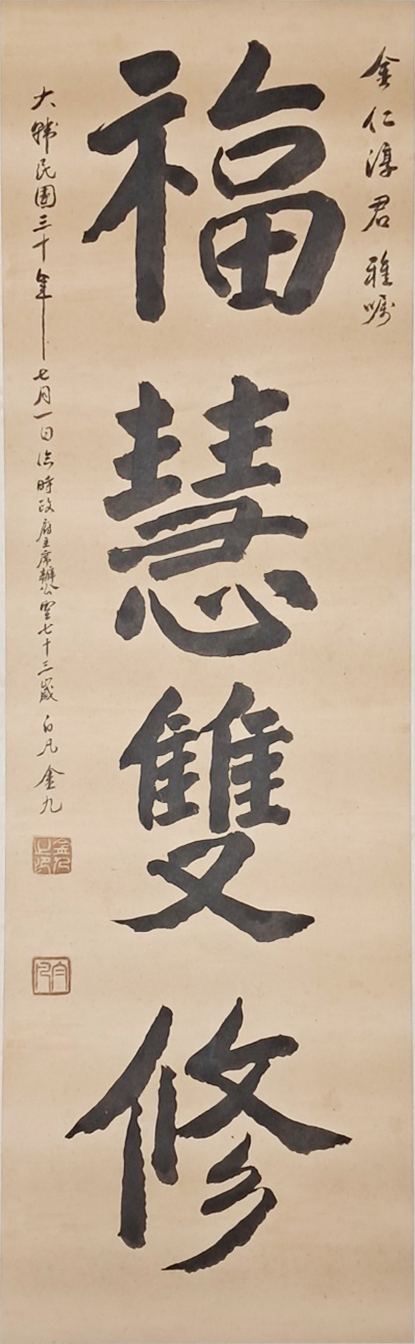 金仁淳君雅嘱
福慧雙修
大韓民國三十年七月一日臨時政府主席辦公室七十三歲白凡金九
金九之印
白凡